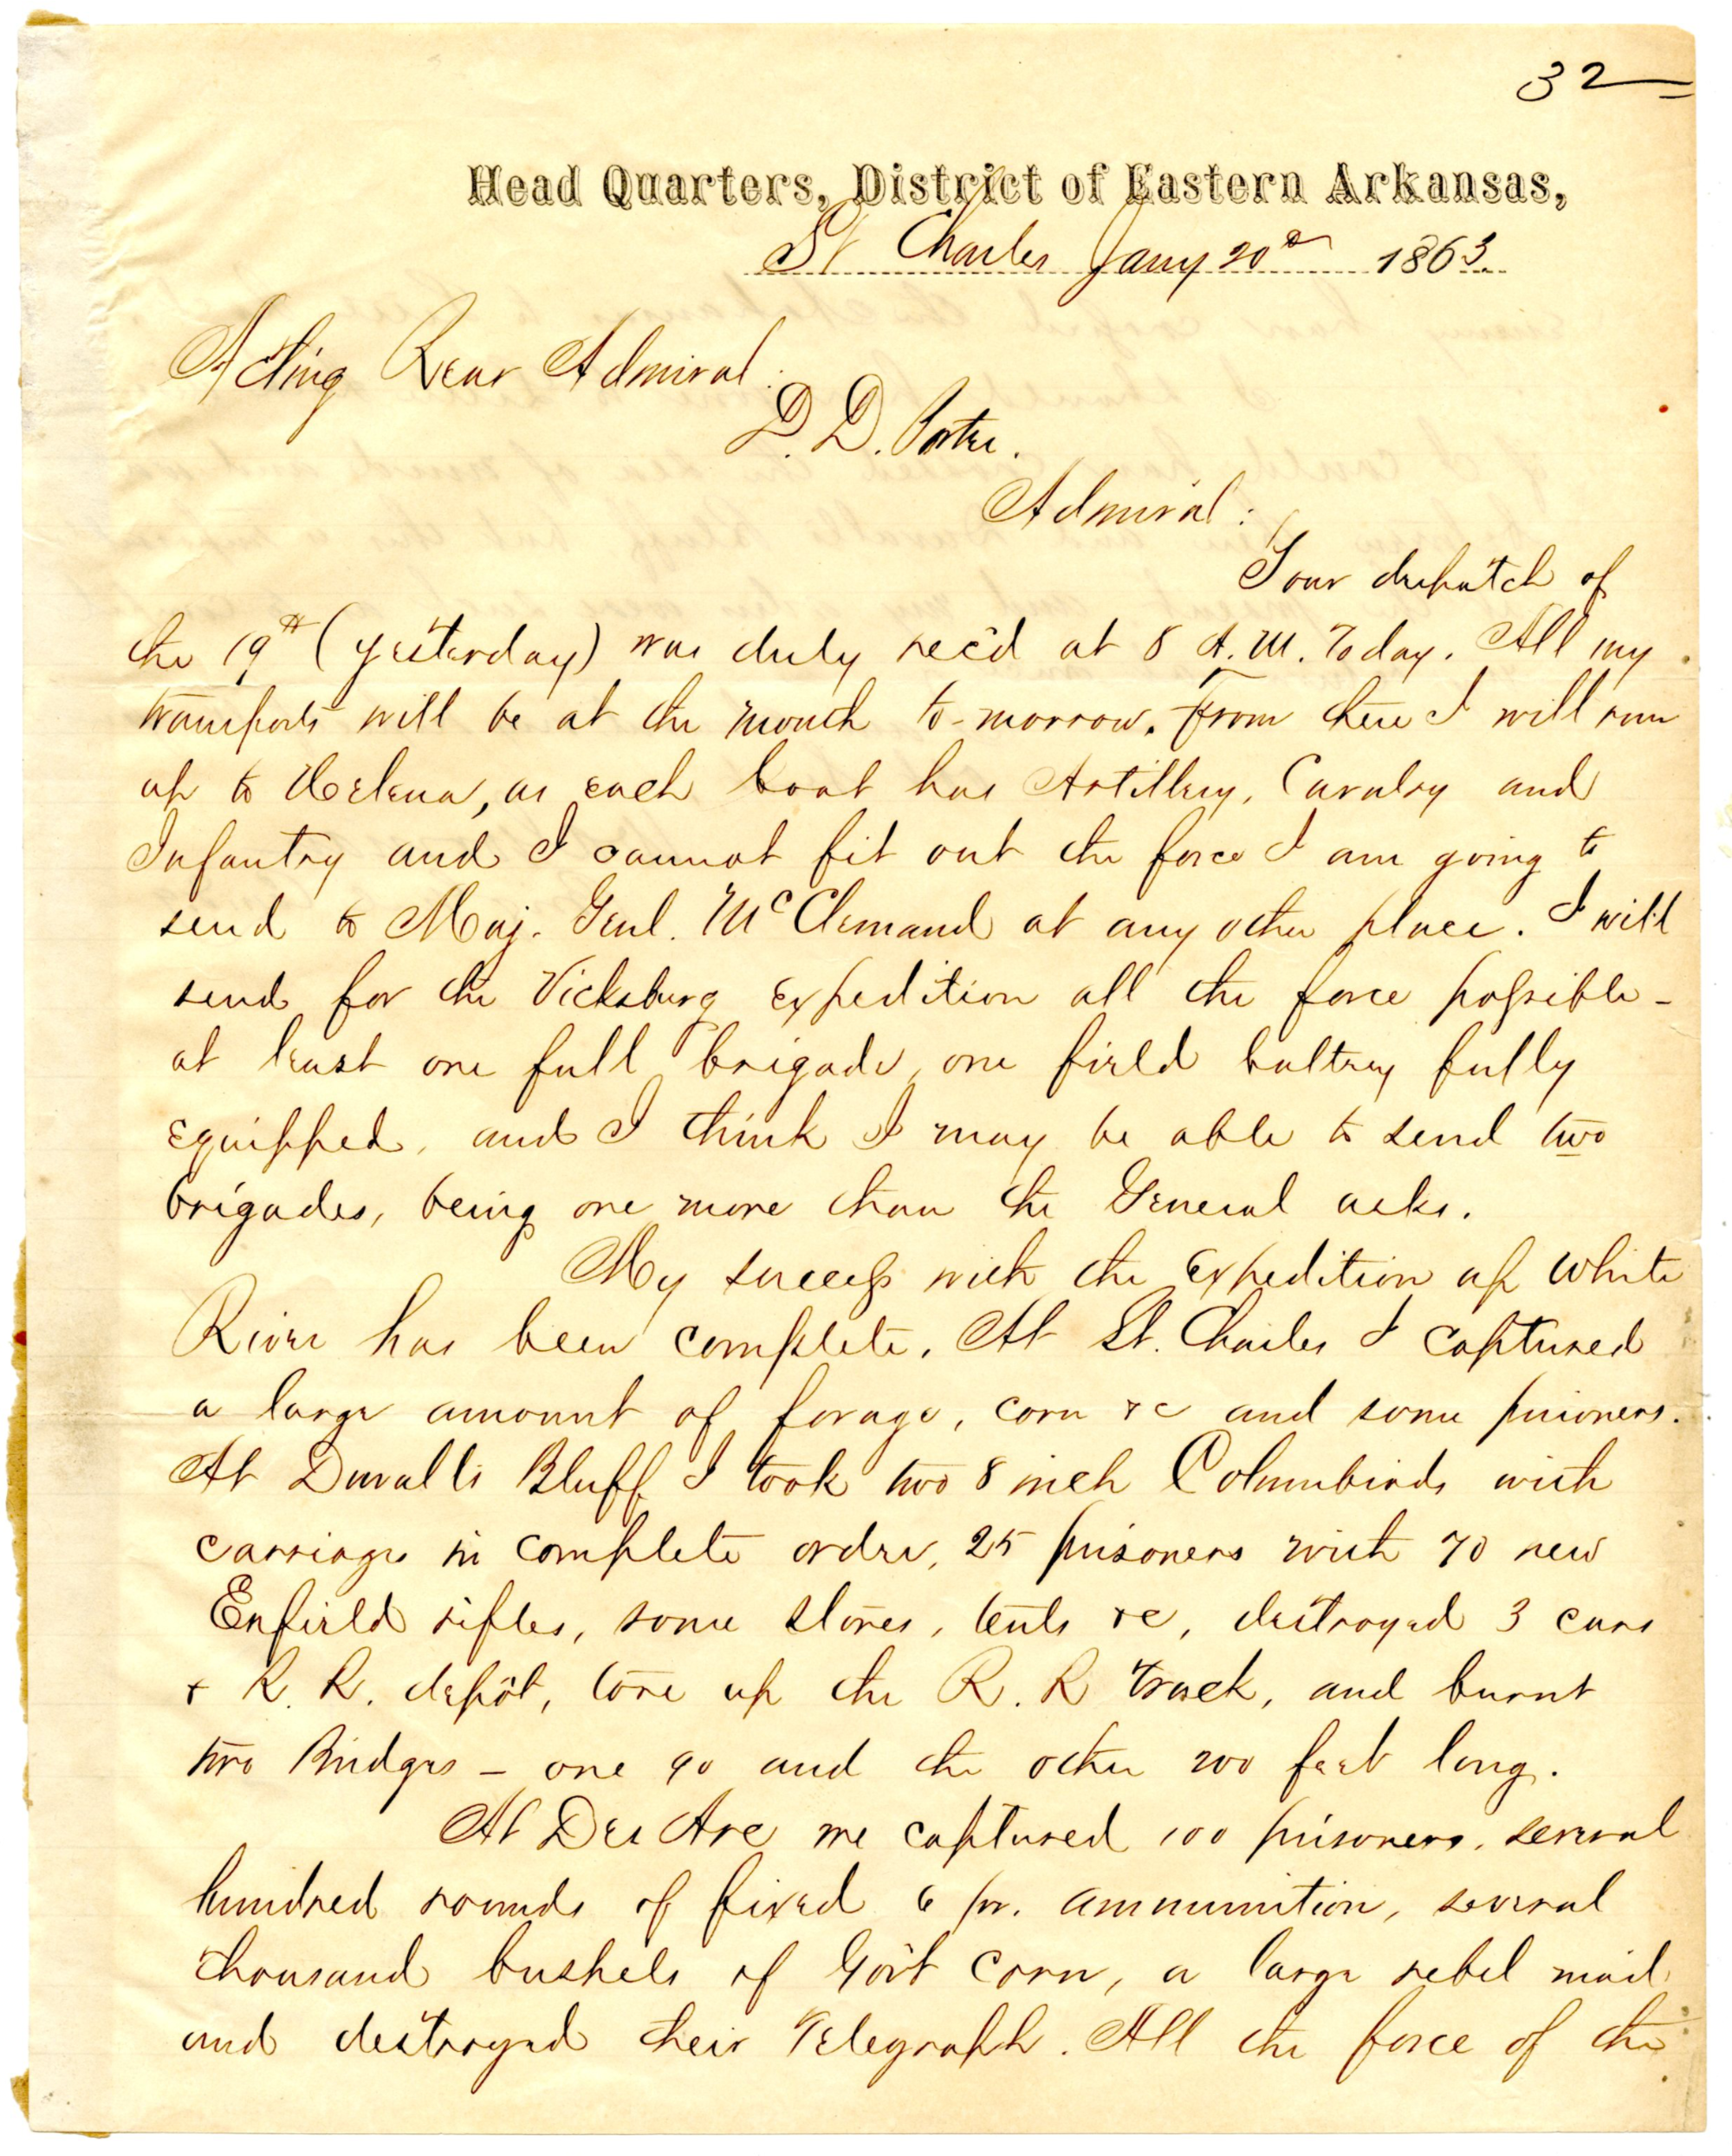 32
Head Quarters, District of Eastern Arkansas,
St Charles Jany 20th 1863.
Acting Rear Admiral:
D. D. Porter.
Admiral:
Your despatch of
the 19th (yesterday) was duly rec'd at 8 A.M. Today. All my
transports will be at the mouth to-morrow. From there I will run
up to Helena, as each boat has Artillery, Cavalry and
Infantry and I cannot fit out the force I am going to
send to Maj. Genl. McClernand at any other place. I will
send for the Vicksburg Expedition all the force possible -
at least one full brigade, one field battery fully
equipped, and I think I may be able to send two
brigades, being one more than the General asks.
My success with the Expedition up White
River has been complete. At St. Charles I captured
a large amount of forage, corn &c and some prisoners.
At Duvalls Bluff I took two 8 inch Columbiads with
carriages in complete order, 25 prisoners with 70 new
Enfield rifles, some stores, tents &c, destroyed 3 cars
& R. R. depôt, tore up the R. R track, and burnt
two Bridges - one 90 and the other 200 feet long.
At Des Arc we captured 100 prisoners, several
hundred rounds of fixed 6 pr. ammunition, several
thousand bushels of Gov't Corn, a large rebel mail
and destroyed their Telegraph. All the force of the